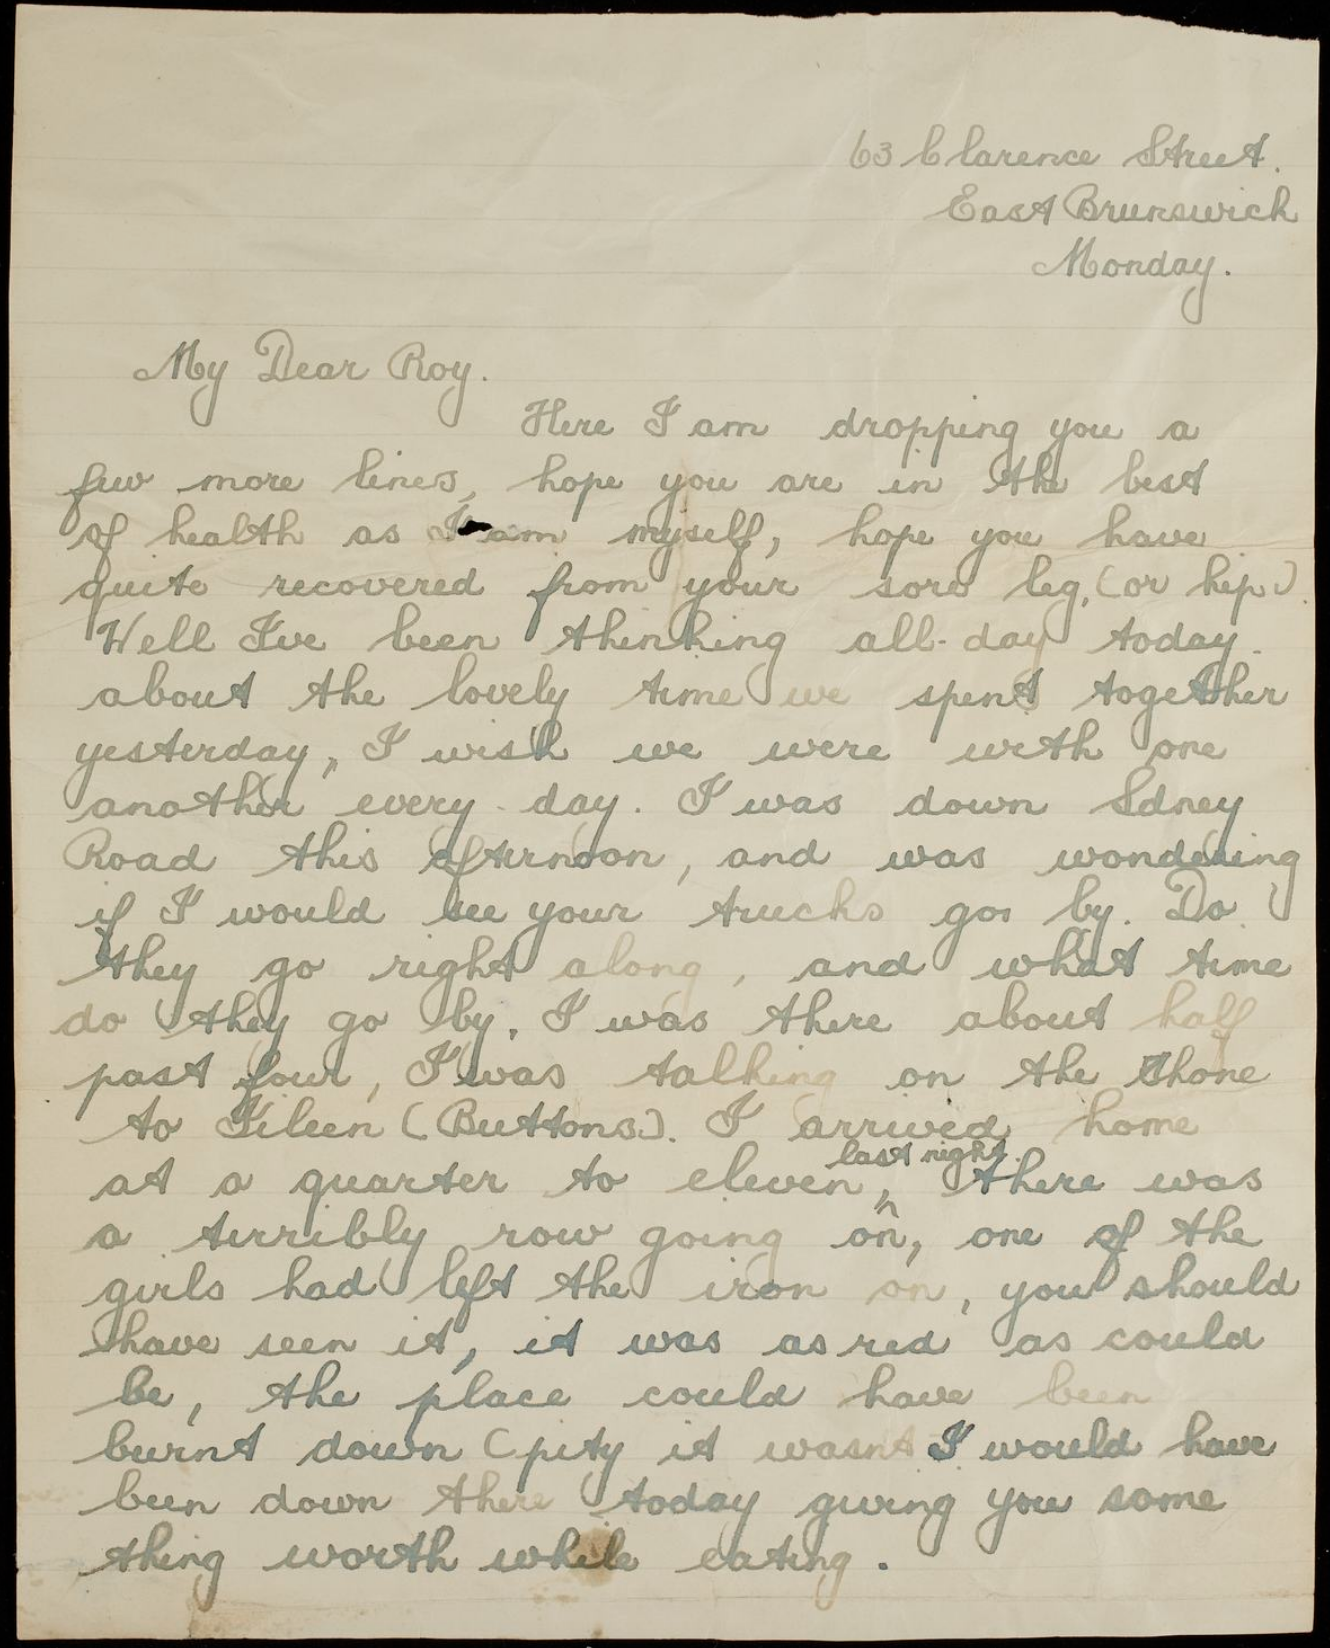 63 Clarence Street.
East Brunswick
Monday.
My Dear Roy.
Here I am dropping you a
few more lines, hope you are in the best
of health as I am myself, hope you have
quite recovered from your sore leg, (or hip.)
Well I've been thinking all-day today.
about the lovely time we spent together
yesterday, I wish we were with one
another every-day. I was down Sdney
Road this afternoon, and was wondering
if I would see your trucks go by. Do
they go right along, and what time
do they go by, I was there about half
past four, I was talking on the Phone
to Eileen (Buttons). I arrived home
at a quarter to eleven, last night. there was
a terribly row going on, one of the
girls had left the iron on, you should
have seen it, it was as red as could
be, the place could have been
burnt down (pity it wasnt I would have
been down there today giving you some
thing worth while eating.